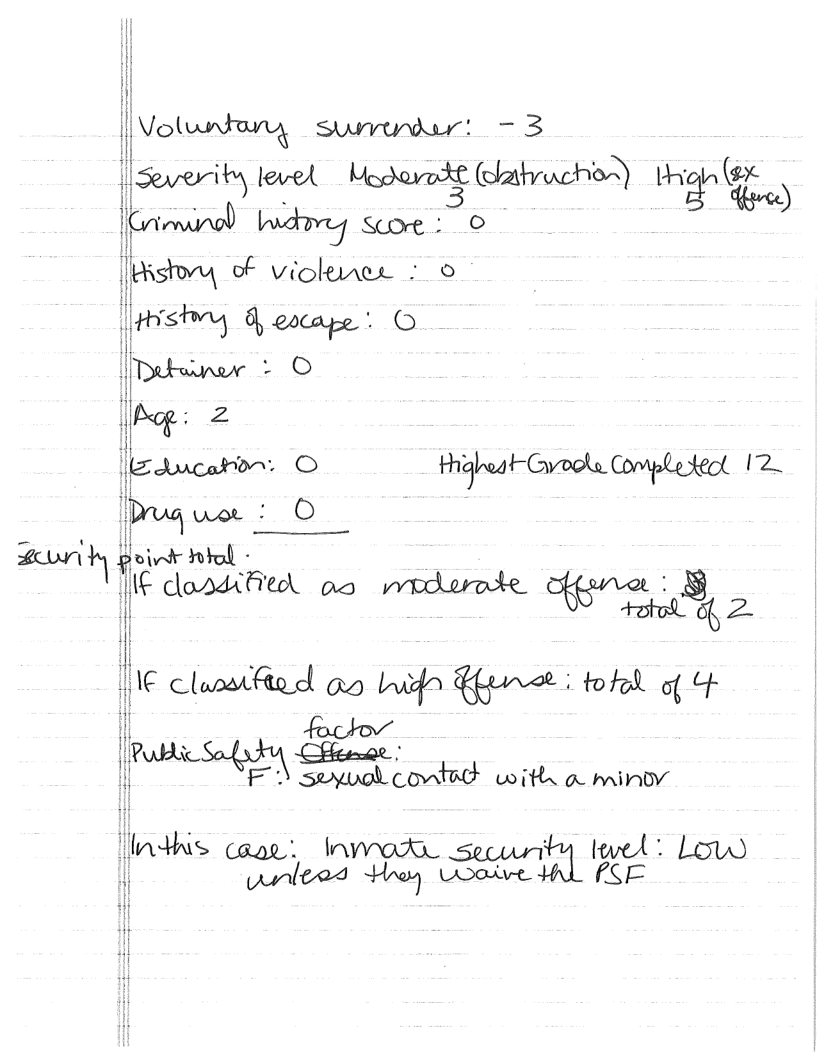 Voluntary surrender: -3
Severity level Moderate (obstruction) High (sex
3 5 offense)
Criminal history score: 0
History of violence: 0
History of escape: 0
Detainer: 0
Age: 2
Education: 0 Highest Grade Completed 12
Drug use: 0
Security point total.
If classified as moderate offense:
total of 2
If classified as high offense: total of 4
factor
Public Safety Offense:
F: sexual contact with a minor
In this case: Inmate security level: LOW
unless they waive the PSF